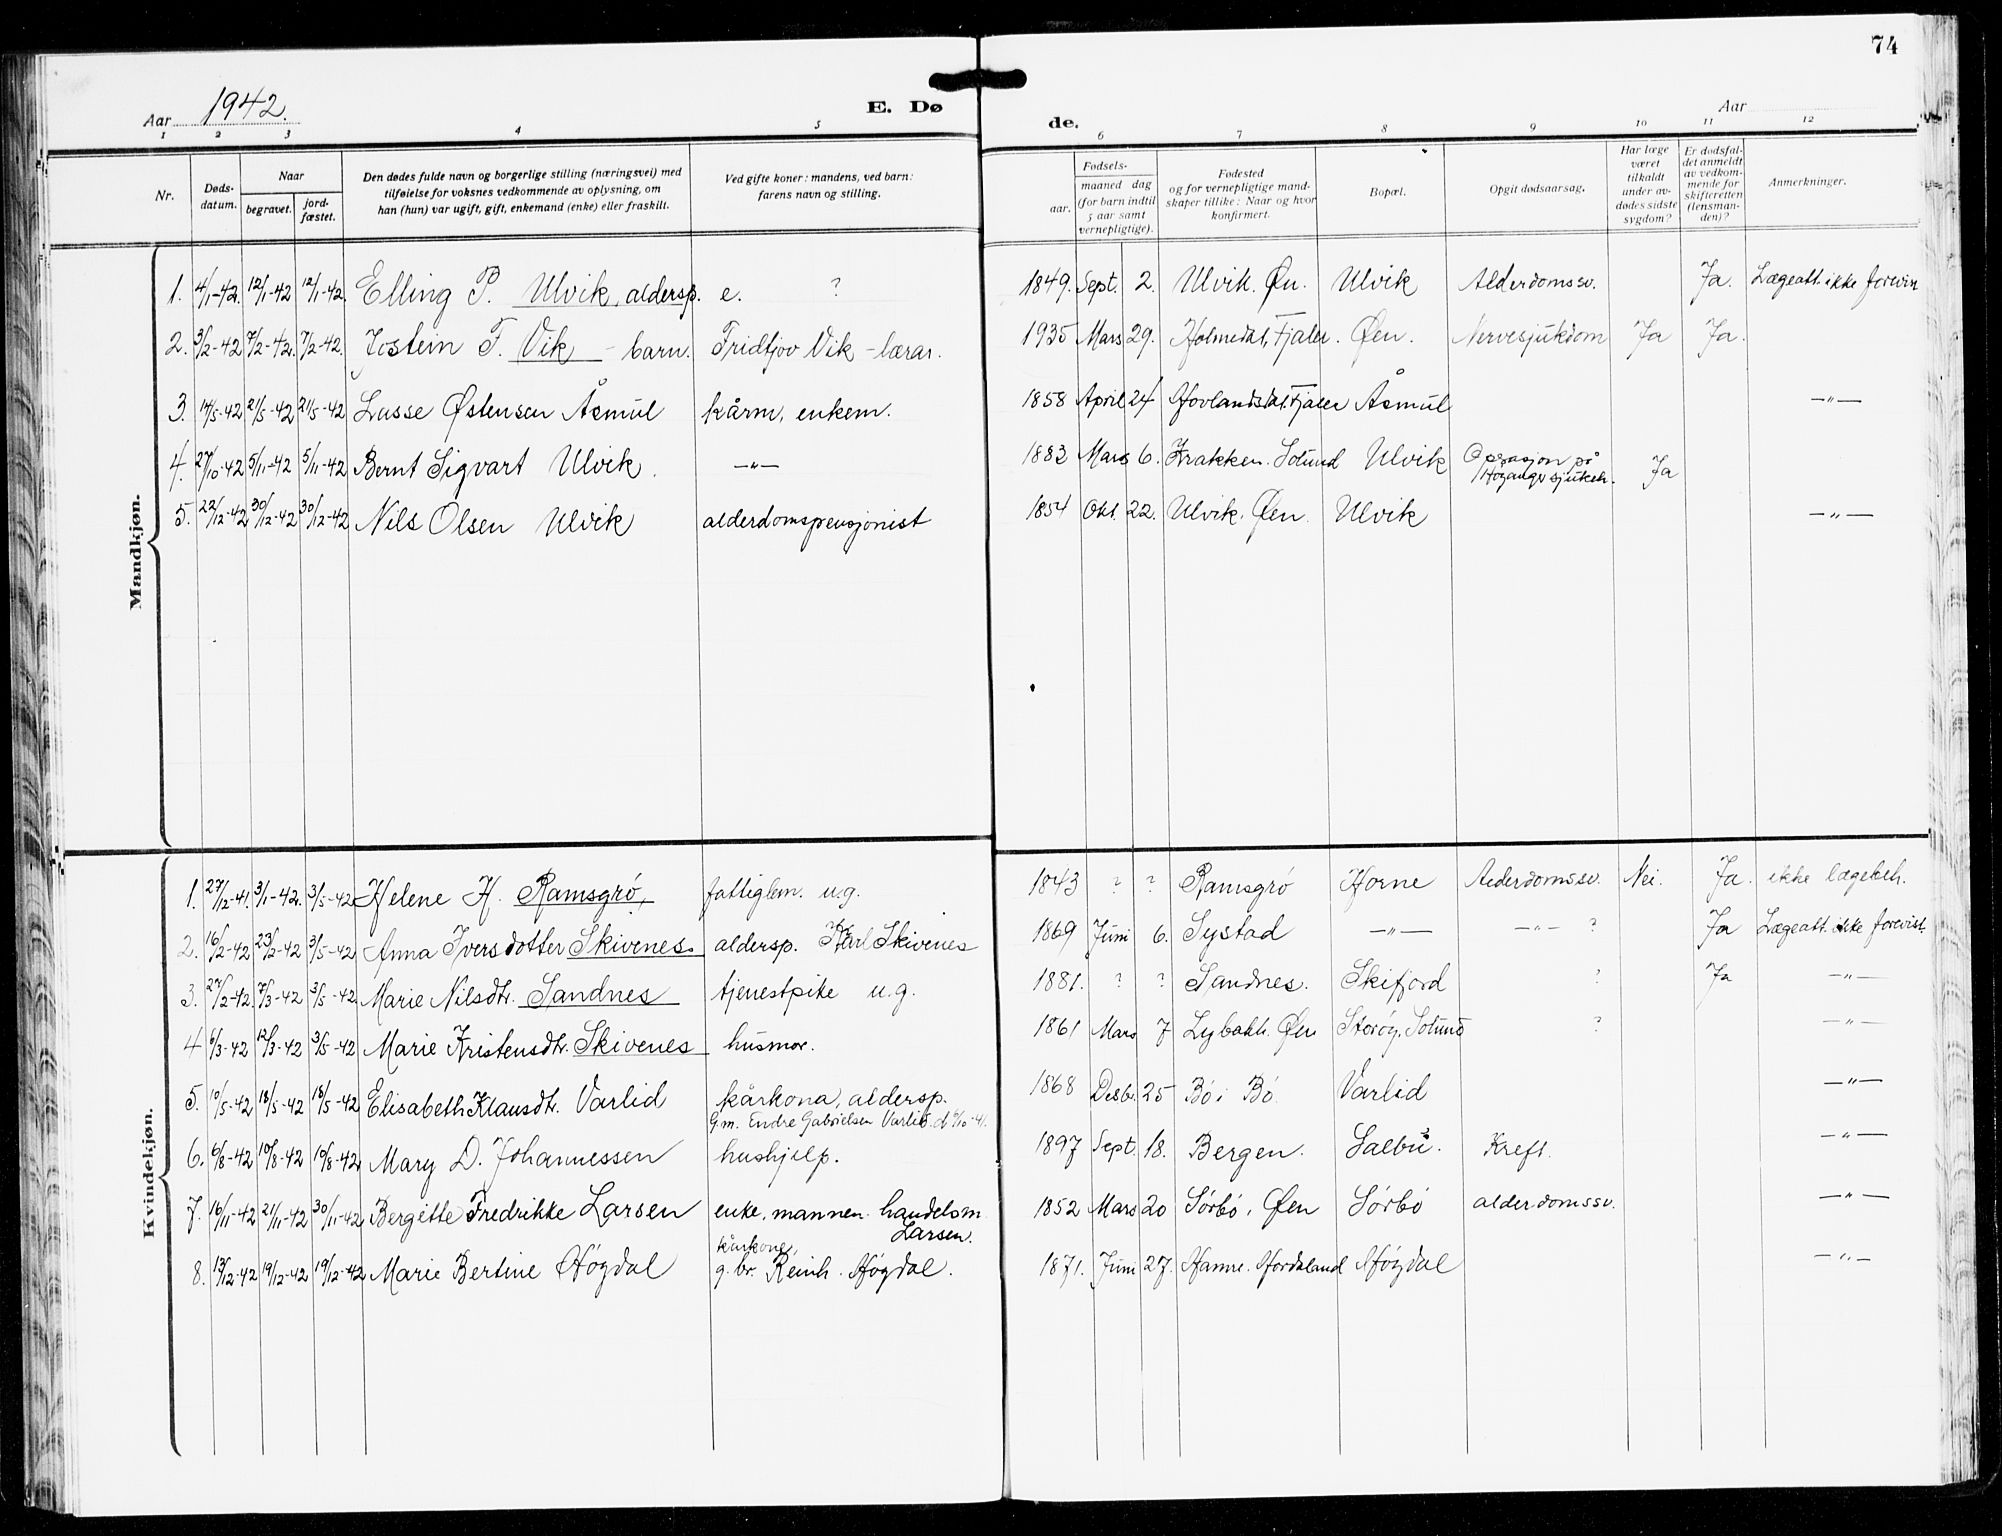 74
Aar 1942.
E. Dø
de.
Aar
1 2 3 4 5 6 7 8 9 10 11 12
Nr.
Døds-
datum.
Naar
begravet.
jord-
fæstet.
Den dødes fulde navn og borgerlige stilling (næringsvei) med
tilføielse for voksnes vedkommende av oplysning, om
han (hun) var ugift, gift, enkemand (enke) eller fraskilt.
Ved gifte koner: mandens, ved barn:
farens navn og stilling.
Fødsels-
aar.
maaned dag
(for barn indtil
5 aar samt
vernepligtige).
Fødested
og for vernepligtige mand-
skaper tillike: Naar og hvor
konfirmert.
Bopæl.
Opgit dødsaarsag.
Har læge
været
tilkaldt
under av-
dødes sidste
sygdom?
Er dødsfal-
det anmeldt
av vedkom-
mende for
skifteretten
(lensman-
den)?
Anmerkninger.
Mandkjøn.
1. 4/1-42. 12/1-42 12/1-42. Elling P. Ulvik, aldersp. e. ? 1849. Sept. 2. Ulvik. Øn. Ulvik Alderdomssv. Ja. Lægeatt. ikke forevis
2. 3/2-42 7/2-42. 7/2-42. Jostein F. Vik - barn. Fridtjov Vik - lærar. 1935 Mars 29. Holmedal, Fjaler. Øen. Nervesjukdom Ja Ja.
3. 14/5-42 21/5-42 21/5-42 Lasse Østensen Åsmul kårm, enkem. 1858 April 24 Hovlandsdal, Fjaler Åsmul -"-
4. 27/10-42 5/11-42 5/11-42 Bernt Sigvart Ulvik. -"- 1883 Mars 6. Krakken. Solund Ulvik Operasjon på
Høyanger sjukeh. Ja
5. 22/12-42 30/12-42 30/12-42 Nils Olsen Ulvik alderdomspensjonist 1854 Okt. 22. Ulvik. Øen. Ulvik -"-
Kvindekjøn.
1. 27/12-41. 3/1-42. 3/5-42 Helene H. Ramsgrø, fattiglem. u.g. 1843 ? ? Ramsgrø Horne Alderdomssv. Nei. Ja. ikke lægebeh.
2. 16/2-42 23/2-42 3/5-42 Anna Iversdotter Skivenes aldersp. Karl Skivenes 1869 Juni 6. Systad -"- -"- ? Ja Lægeatt. ikke forevist.
3. 27/2-42. 7/3-42 3/5-42 Marie Nilsdtr. Sandnes tjenestpike u.g. 1881. ? ? Sandnes. Skifjord ? Ja -"-
4 6/3-42 12/3-42 3/5-42 Marie Kristensdtr. Skivenes husmor. 1861 Mars 7 Lybakk. Øen Storøy, Solund ? -"-
5. 10/5-42 18/5-42 18/5-42 Elisabeth Klausdtr. Varlid kårkona, aldersp.
G.m. Endre Gabrielsen Varlid. d. 6/10-41. 1868 Desbr. 25 Bø i Bø. Varlid -"-
6. 6/8-42 10/8-42 10/8-42. Mary D. Johannessen hushjelp. 1897 Sept. 18. Bergen. Salbu. Kreft. -"-
7. 16/11-42 21/11-42 30/11-42 Bergitte Fredrikke Larsen enke. mannen handelsm.
Larsen. 1852 Mars 20 Sørbø, Øen Sørbø alderdomssv. -"-
8. 13/12-42 19/12-42 19/12-42 Marie Bertine Høgdal kårkone,
g. br. Reinh. Høgdal. 1871. Juni 27. Hamre. Hordaland Høgdal -"-